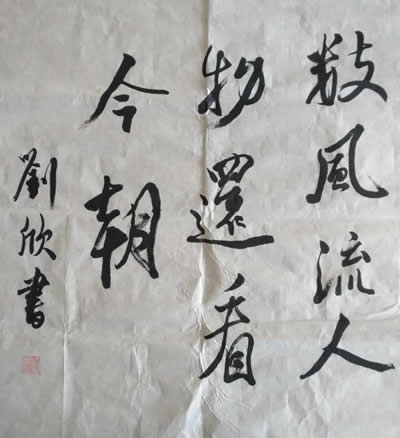 數風流人
物還看
今朝
劉欣書